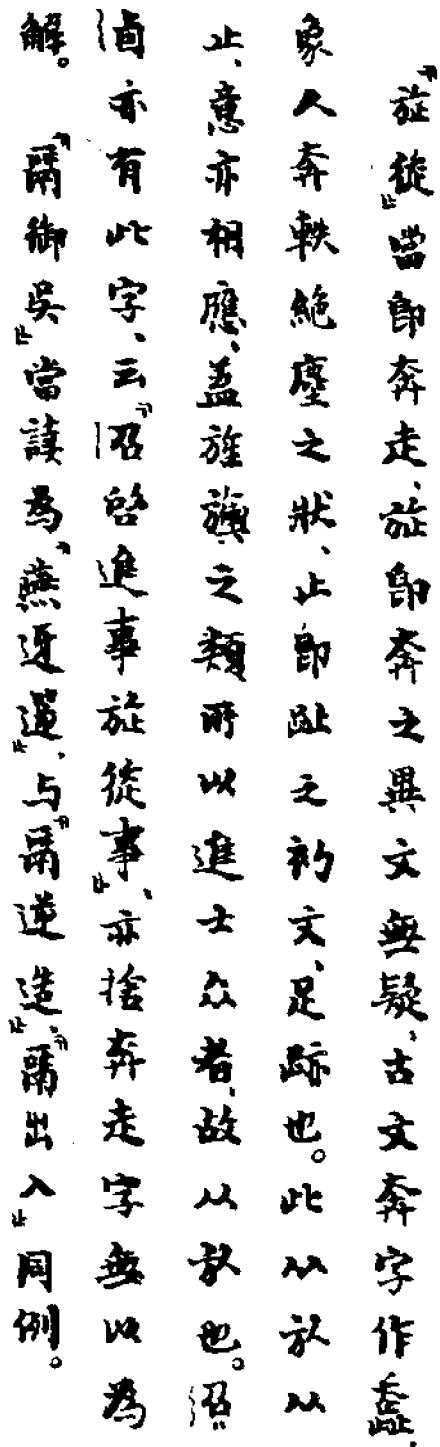 『徒』當即奔走、即奔之異文無疑、古文奔字作
象人奔軼絕塵之狀、止即趾之初文、足跡也。此从㫃从
止、意亦相應、蓋旌旗之類所以進士眾者、故从㫃也。沼
卣亦有此字、云『沼啓進事徒事』、亦捨奔走字無以為
解。『御吳』當讀為『燕迓遘』、与『逆造』『出入』同例。